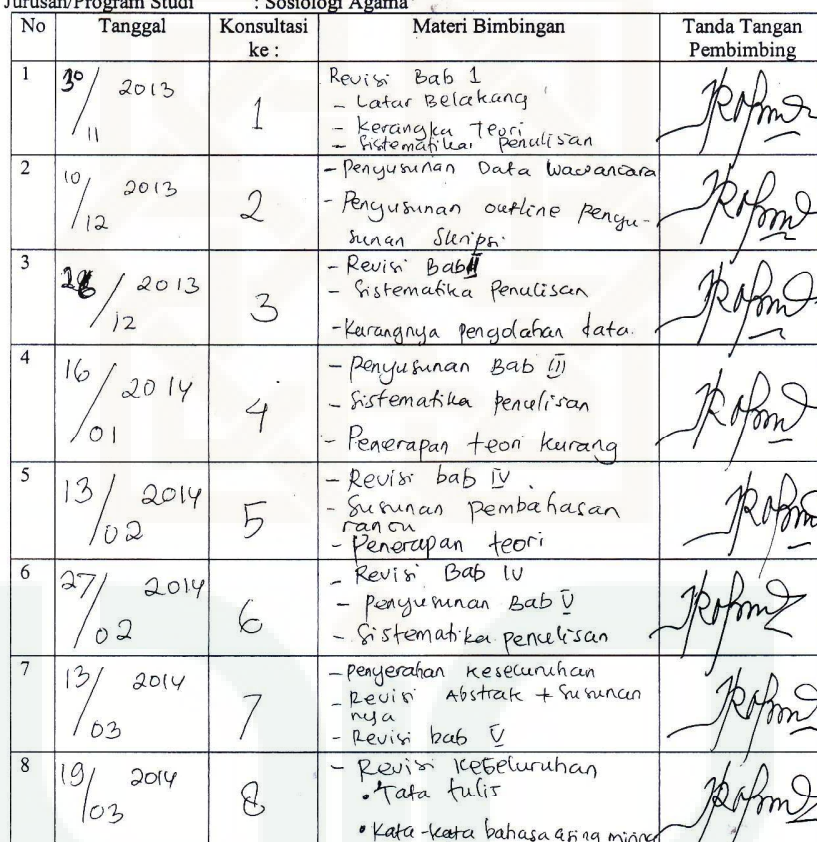 Jurusan/Program Studi : Sosiologi Agama
No Tanggal Konsultasi ke : Materi Bimbingan Tanda Tangan Pembimbing
1 30/11 2013 1 Revisi Bab 1
- Latar Belakang
- Kerangka Teori
- Sistematika Penulisan
2 10/12 2013 2 - Penyusunan Data Wawancara
- Penyusunan outline penyu-
sunan Skripsi
3 /12 2013 3 - Revisi Bab II
- Sistematika Penulisan
- Kurangnya pengolahan data.
4 16/01 2014 4 - Penyusunan Bab III
- Sistematika penulisan
- Penerapan teori kurang
5 13/02 2014 5 - Revisi bab IV
- Susunan pembahasan
rancu
- Penerapan teori
6 27/02 2014 6 - Revisi Bab IV
- Penyusunan Bab V
- Sistematika penulisan
7 13/03 2014 7 - Penyerahan Keseluruhan
- Revisi Abstrak + Susunan
nya
- Revisi bab V
8 19/03 2014 8 - Revisi Keseluruhan
• Tata tulis
• Kata-kata bahasa asing miring